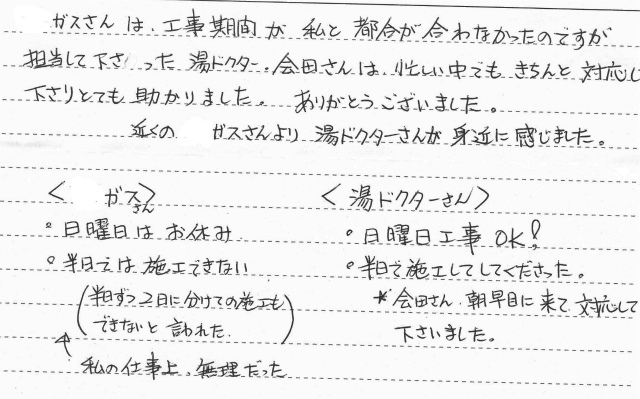 ガスさんは、工事期間が私と都合が合わなかったのですが
担当して下さった湯ドクター。会田さんは、忙しい中でもきちんと対応し
下さりとても助かりました。ありがとうございました。
近くの ガスさんより湯ドクターさんが身近に感じました。
< ガスさん>
。日曜日はお休み
。半日では施工できない
(半日ずつ2日に分けての施工も
できないと言われた)
↑
私の仕事上、無理だった
<湯ドクターさん>
。日曜日工事OK!
。半日で施工してしてくださった。
*会田さん、朝早目に来て対応して
下さいました。